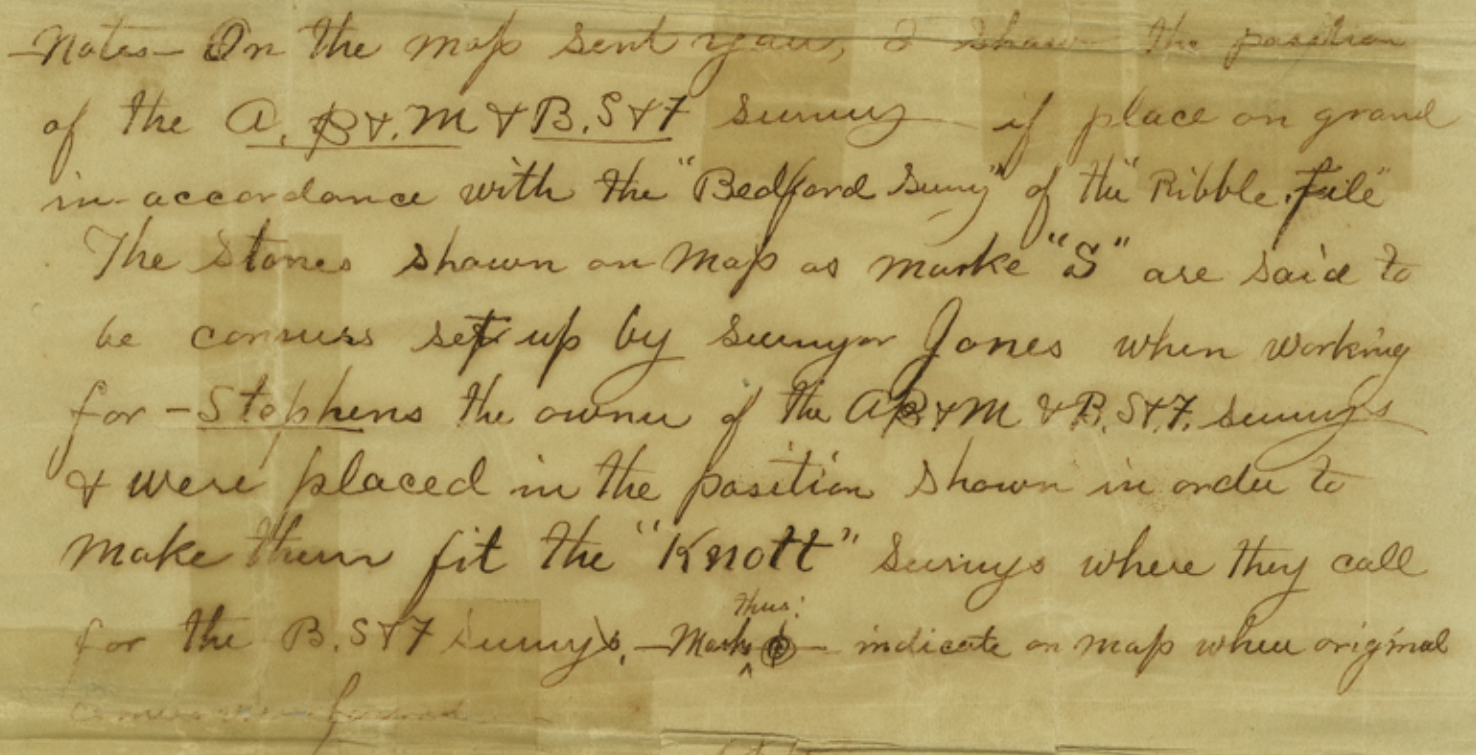 —Notes— On the map sent you, I show the position
of the A. B & M & B. S & F survey if place on ground
in accordance with the "Bedford Survey" of the "Ribble file"
The Stones shown on Map as marke "S" are said to
be corners set up by surveyor Jones when working
for — Stephens the owner of the AB & M & B. S & F. surveys
& were placed in the position shown in order to
make them fit the "Knott" Surveys where they call
thus:
for the B. S & F surveys, — Mark — indicate on map where original
corners were found